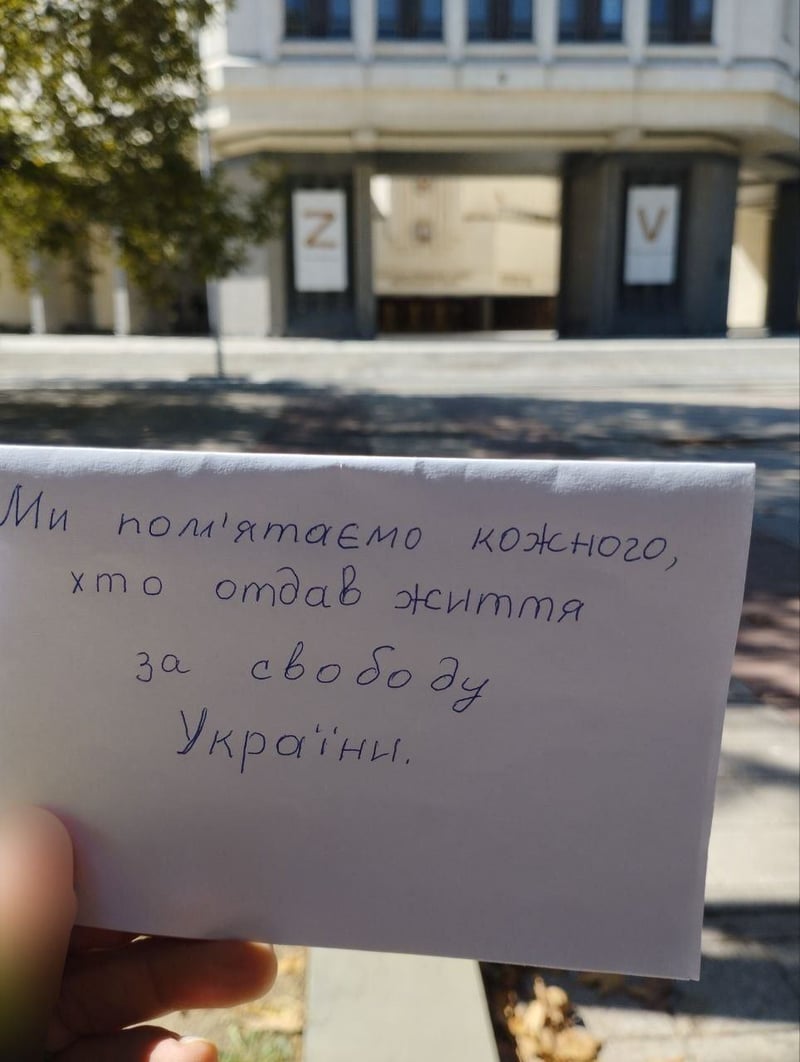 Z
V
Ми пом'ятаємо кожного,
хто отдав життя
за свободу
України.